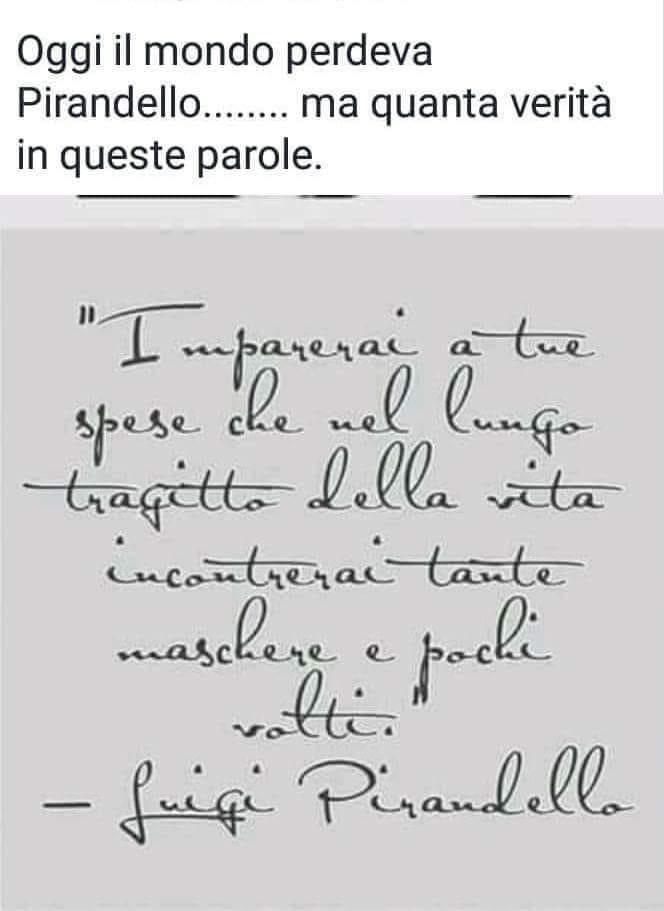 Oggi il mondo perdeva
Pirandello........ ma quanta verità
in queste parole.
"Imparerai a tue
spese che nel lungo
tragitto della vita
incontrerai tante
maschere e pochi
volti."
– Luigi Pirandello